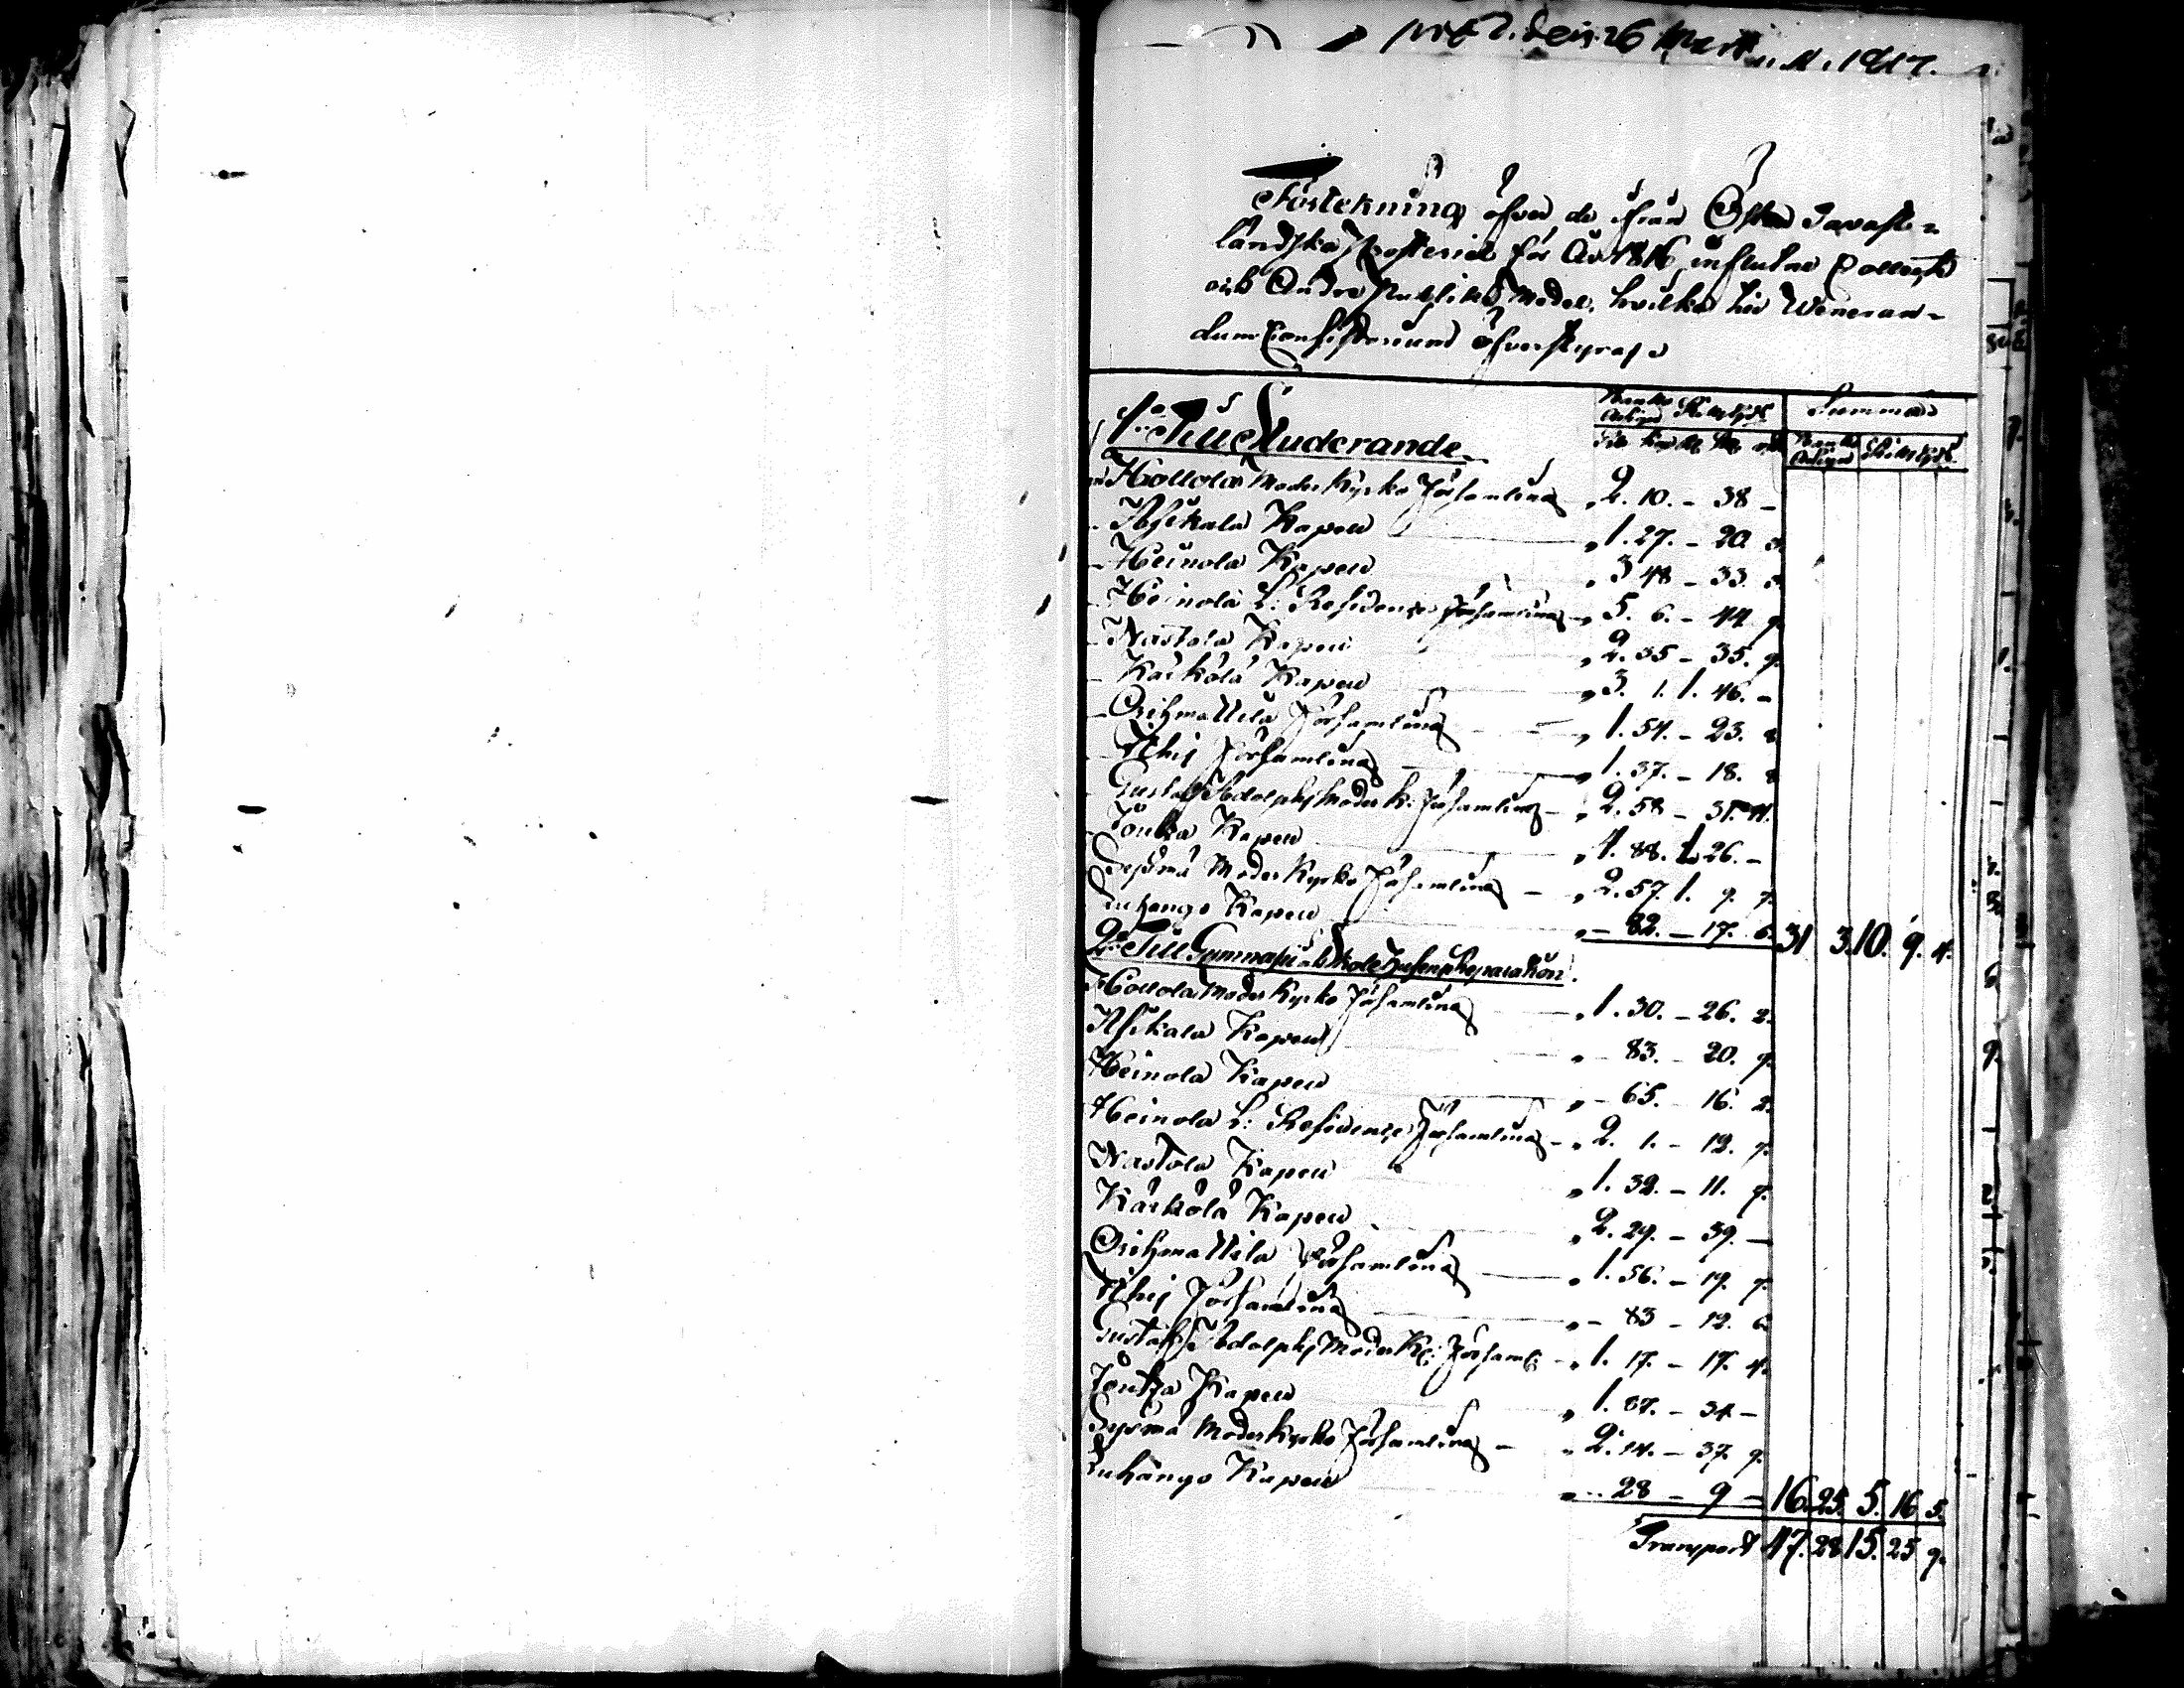 den 26 Martii 1817.
Förtekning öfver de ifrån Öfre Tavaste-
ländska Prosteriet för År 1816 influtne Collecter
och Andre Publike Medel, hvilka till Veneran-
dum Consistorium öfverstyras
Banko Riksgälds Summa
1o Till Studerande Banko Riksgälds
Hollola Moder Kyrko Församling 2. 10. - 38 -
Asikala Kapell 1. 27. - 20.
Heinola Kapell 3 48 - 33.
Heinola L: Residence Församling 5. 6. - 44. 9.
Nastola Kapell 2. 35 - 35. 9.
Kärkölä Kapell 3. 1. 1. 46. -
Orihmattila Församling 1. 54. - 23. 8
Ithis Församling 1. 37. - 18. 8
Gustaf Adolphs Moder K: Församling - 2. 58 - 31. 11.
Joutza Kapell 4. 88. 1. 26. -
Sysmä Moder Kyrko Församling - 2. 57. 1. 9. 7.
Luhango Kapell - 82. - 17. 6. 31 3. 10. 9. 4.
2o Till Gymnasii och Skole Husens Reparation.
Hollola Moder Kyrko Församling 1. 30. - 26. 2.
Asikala Kapell - 83. - 20. 9.
Heinola Kapell - 65. - 16. 2.
Heinola L: Residence Församling - 2. 1. - 12. 7.
Nastola Kapell 1. 32. - 11. 7.
Kärkölä Kapell 2. 29. - 39. -
Orihmattila Församling 1. 56. - 19. 7.
Ithis Församling - 83 - 12. 6.
Gustaf Adolphs Moder K: Församl: 1. 17. - 17. 4.
Joutza Kapell 1. 87. - 34 -
Sysmä Moder Kyrko Församling - 2. 14. - 37. 9.
Luhango Kapell - 28 - 9 - 16. 25. 5. 16. 5.
Transport 47. 28. 15. 25. 9.